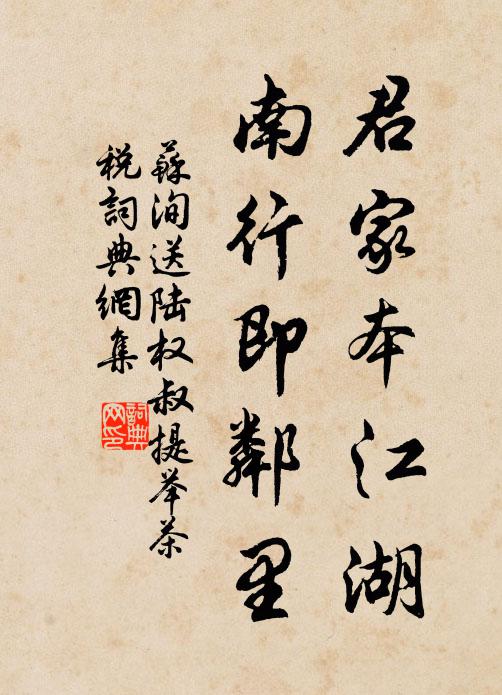 君家本江湖
南行即鄰里
蘇洵送陆权叔提举茶
税詞典網集
詞典网印